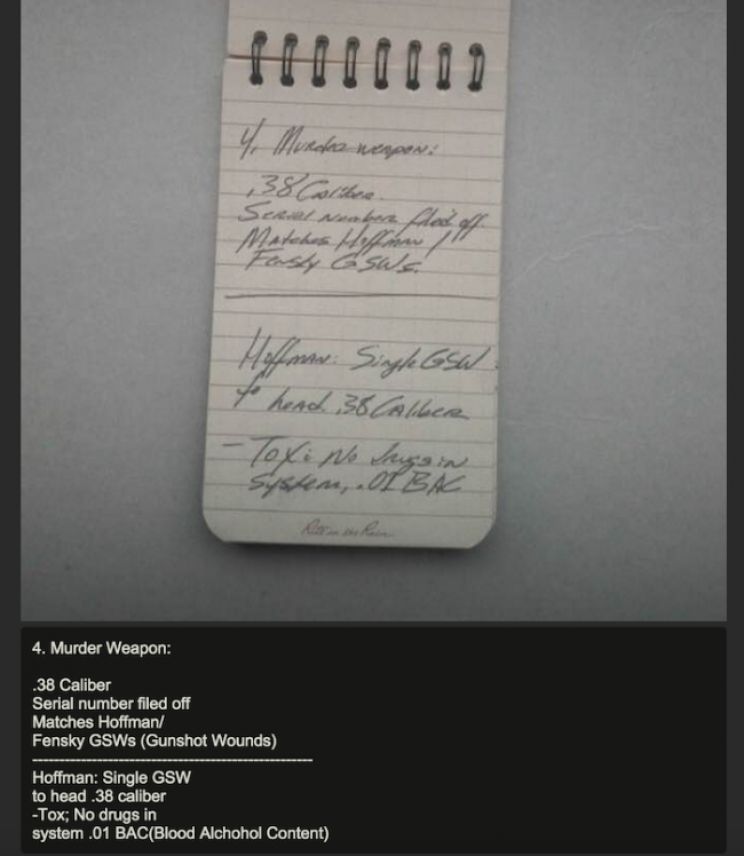 4. Murder weapon:
.38 Caliber.
Serial numbers filed off.
Matches Hoffman /
Fensky GSWs.
Hoffman: Single GSW
to head .38 Caliber
- Tox: No drugs in
system, .01 BAC
Rite in the Rain
4. Murder Weapon:
.38 Caliber
Serial number filed off
Matches Hoffman/
Fensky GSWs (Gunshot Wounds)
Hoffman: Single GSW
to head .38 caliber
-Tox; No drugs in
system .01 BAC(Blood Alchohol Content)